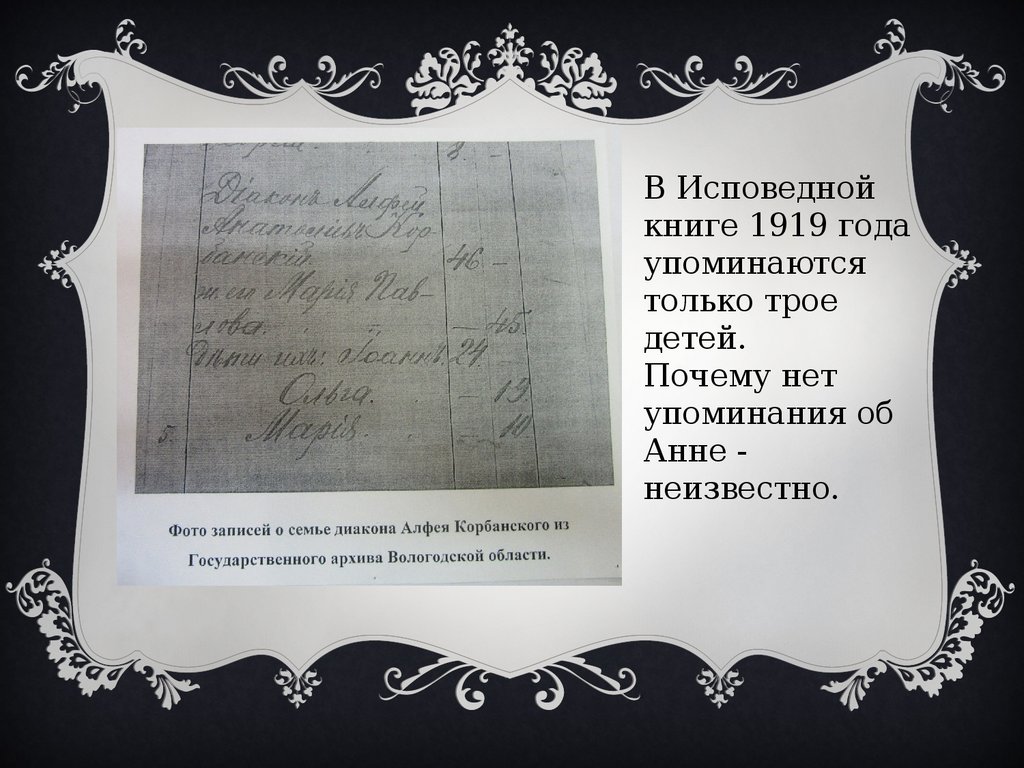 8. -
Діаконъ Алфей
Анатоліевъ Кор-
банскій. 46 -
ж. ег Марія Пав-
лова. . „ - 45.
Дѣти ихъ: Іоаннъ. 24. -
Ольга. . - 13.
5. Марія. . - 10.
Фото записей о семье диакона Алфея Корбанского из
Государственного архива Вологодской области.
В Исповедной
книге 1919 года
упоминаются
только трое
детей.
Почему нет
упоминания об
Анне -
неизвестно.